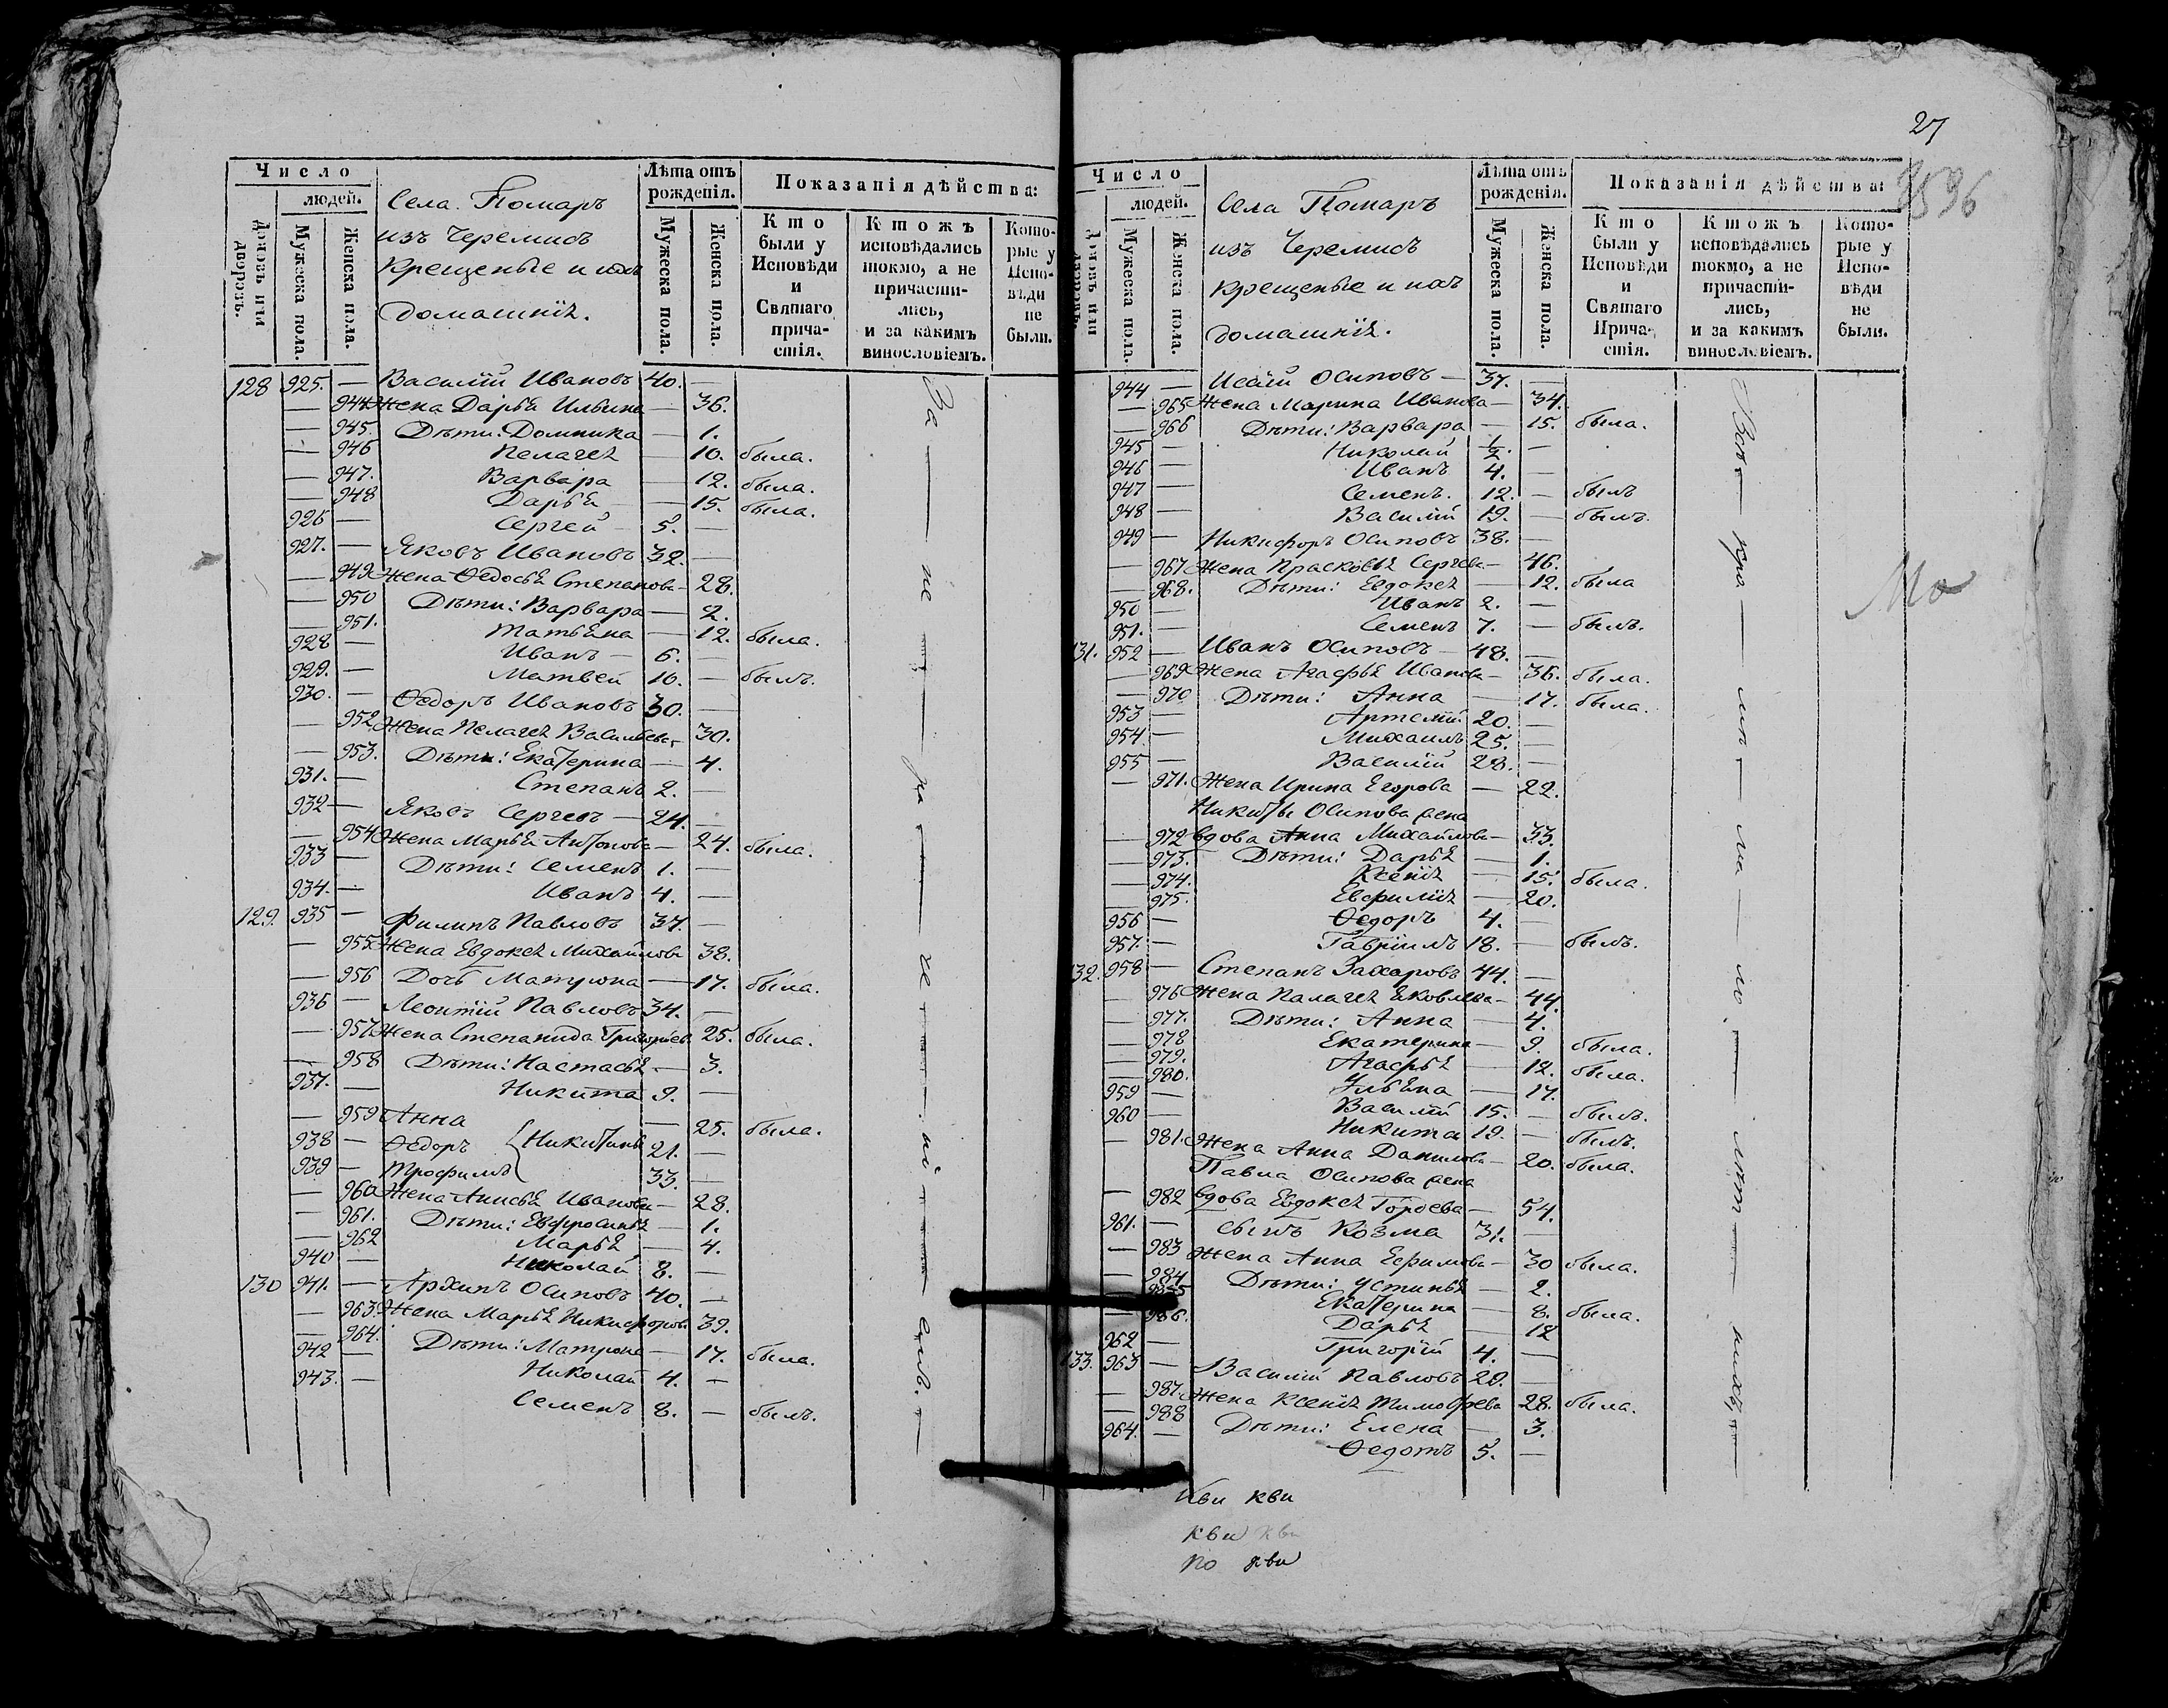 Число
людей.
Домовъ или дворовъ.
Мужеска пола.
Женска пола.
Села Помаръ
изъ Черемисъ
крещеные и ихъ
домашнiе.
Лѣта отъ рожденія.
Мужеска пола.
Женска пола.
Показанія дѣйства:
Кто были у Исповѣди и Святаго причастія.
Ктожъ исповѣдались токмо, а не причастились, и за какимъ винословіемъ.
Которые у Исповѣди не были.
128 925. — Василій Ивановъ 40. —
— 944 Жена Дарья Ильина — 36.
— 945. Дѣти: Домника — 1.
— 946 Пелагея — 10. была.
— 947. Варвара — 12. была.
— 948 Дарья — 15. была.
926 — Сергей 5. —
927. — Яковъ Ивановъ 32. —
— 949 Жена Ѳедосья Степанова — 28.
— 950 Дѣти: Варвара — 2.
— 951. Татьяна — 12. была.
928 — Иванъ — 6. —
929. — Матвей 10. — былъ.
930. — Ѳедоръ Ивановъ 30. —
— 952 Жена Пелагея Васильева — 30.
— 953. Дѣти: Екатерина — 4.
931. — Степанъ 2. —
932 — Яковъ Сергеевъ — 24. —
— 954 Жена Марья Антонова — 24. была.
933 — Дѣти: Семенъ 1. —
934. — Иванъ 4. —
129. 935 — Филипъ Павловъ 37. —
— 955 Жена Евдокея Михайлова 38.
— 956 Дочь Матрона — 17. была.
936 — Леонтій Павловъ 34. —
— 957 Жена Степанида Григорiева 25. была.
— 958 Дѣти: Настасья — 3.
937. — Никита 9. —
— 959 Анна — 25. была.
938 — Ѳедоръ { Никитины 21. —
939 — Трофимъ 33. —
— 960 Жена Анисья Иванова — 28.
— 961. Дѣти: Евфросинья — 1.
— 962 Марья — 4.
940 — Николай 8. —
130 941. — Архипъ Осиповъ 40. —
— 963 Жена Марья Никифорова 39.
— 964. Дѣти: Матрона — 17. была.
942 — Николай 4. —
943. — Семенъ 8. — былъ.
27
Число
людей.
Домовъ или дворовъ.
Мужеска пола.
Женска пола.
Села Помаръ
изъ Черемисъ
крещеные и ихъ
домашнiе.
Лѣта отъ рожденія.
Мужеска пола.
Женска пола.
Показанія дѣйства:
Кто были у Исповѣди и Святаго Причастія.
Ктожъ исповѣдались токмо, а не причастились, и за какимъ винословіемъ.
Которые у Исповѣди не были.
944 — Исаiй Осиповъ — 37. —
— 965 Жена Марина Иванова — 34.
— 966 Дѣти: Варвара — 15. была.
945 — Николай ½. —
946 — Иванъ 4. —
947 — Семенъ. 12. — былъ
948 — Василій 19. — былъ.
949 — Никифоръ Осиповъ 38. —
— 967 Жена Прасковья Сергеева — 46.
— 968. Дѣти: Евдокея — 12. была
950 — Иванъ 2. —
951. — Семенъ 7. — былъ.
131. 952 — Иванъ Осиповъ — 48. —
— 969 Жена Агафья Иванова — 36. была.
— 970 Дѣти: Анна — 17. была.
953 — Артемій 20. —
954. — Михаилъ 25. —
955 — Василій 28. —
— 971. Жена Ирина Егорова — 22.
Никиты Осипова жена
— 972 вдова Анна Михайлова — 33.
— 973. Дѣти: Дарья — 1.
— 974. Ксенiя — 15. была.
— 975. Евфимiя — 20.
956 — Ѳедоръ 4. —
957. — Гаврiилъ 18. — былъ.
132. 958 — Степанъ Захаровъ 44. —
— 976 Жена Палагея Яковлева — 44.
— 977. Дѣти: Анна — 4.
— 978 Екатерина — 9. была.
— 979. Агафья — 12. была.
— 980. Ульяна — 17.
959 — Василій 15. — былъ.
960 — Никита 19. — былъ.
— 981. Жена Анна Данилова — 20. была.
Павла Осипова жена
— 982 вдова Евдокея Гордѣева — 54.
961. — сынъ Козма 31. —
— 983 Жена Анна Ефимова — 30 была.
— 984 Дѣти: Устинья — 2.
985 Екатерина — 8. была.
— 986. Дарья — 12
962 — Григорій 4. —
133. 963 — Василій Павловъ 29. —
— 987. Жена Ксенiя Тимофѣева 28. была.
— 988 Дѣти: Елена — 3.
964. — Ѳедотъ 5. —
Мо
кви кви
кви кви
по кви